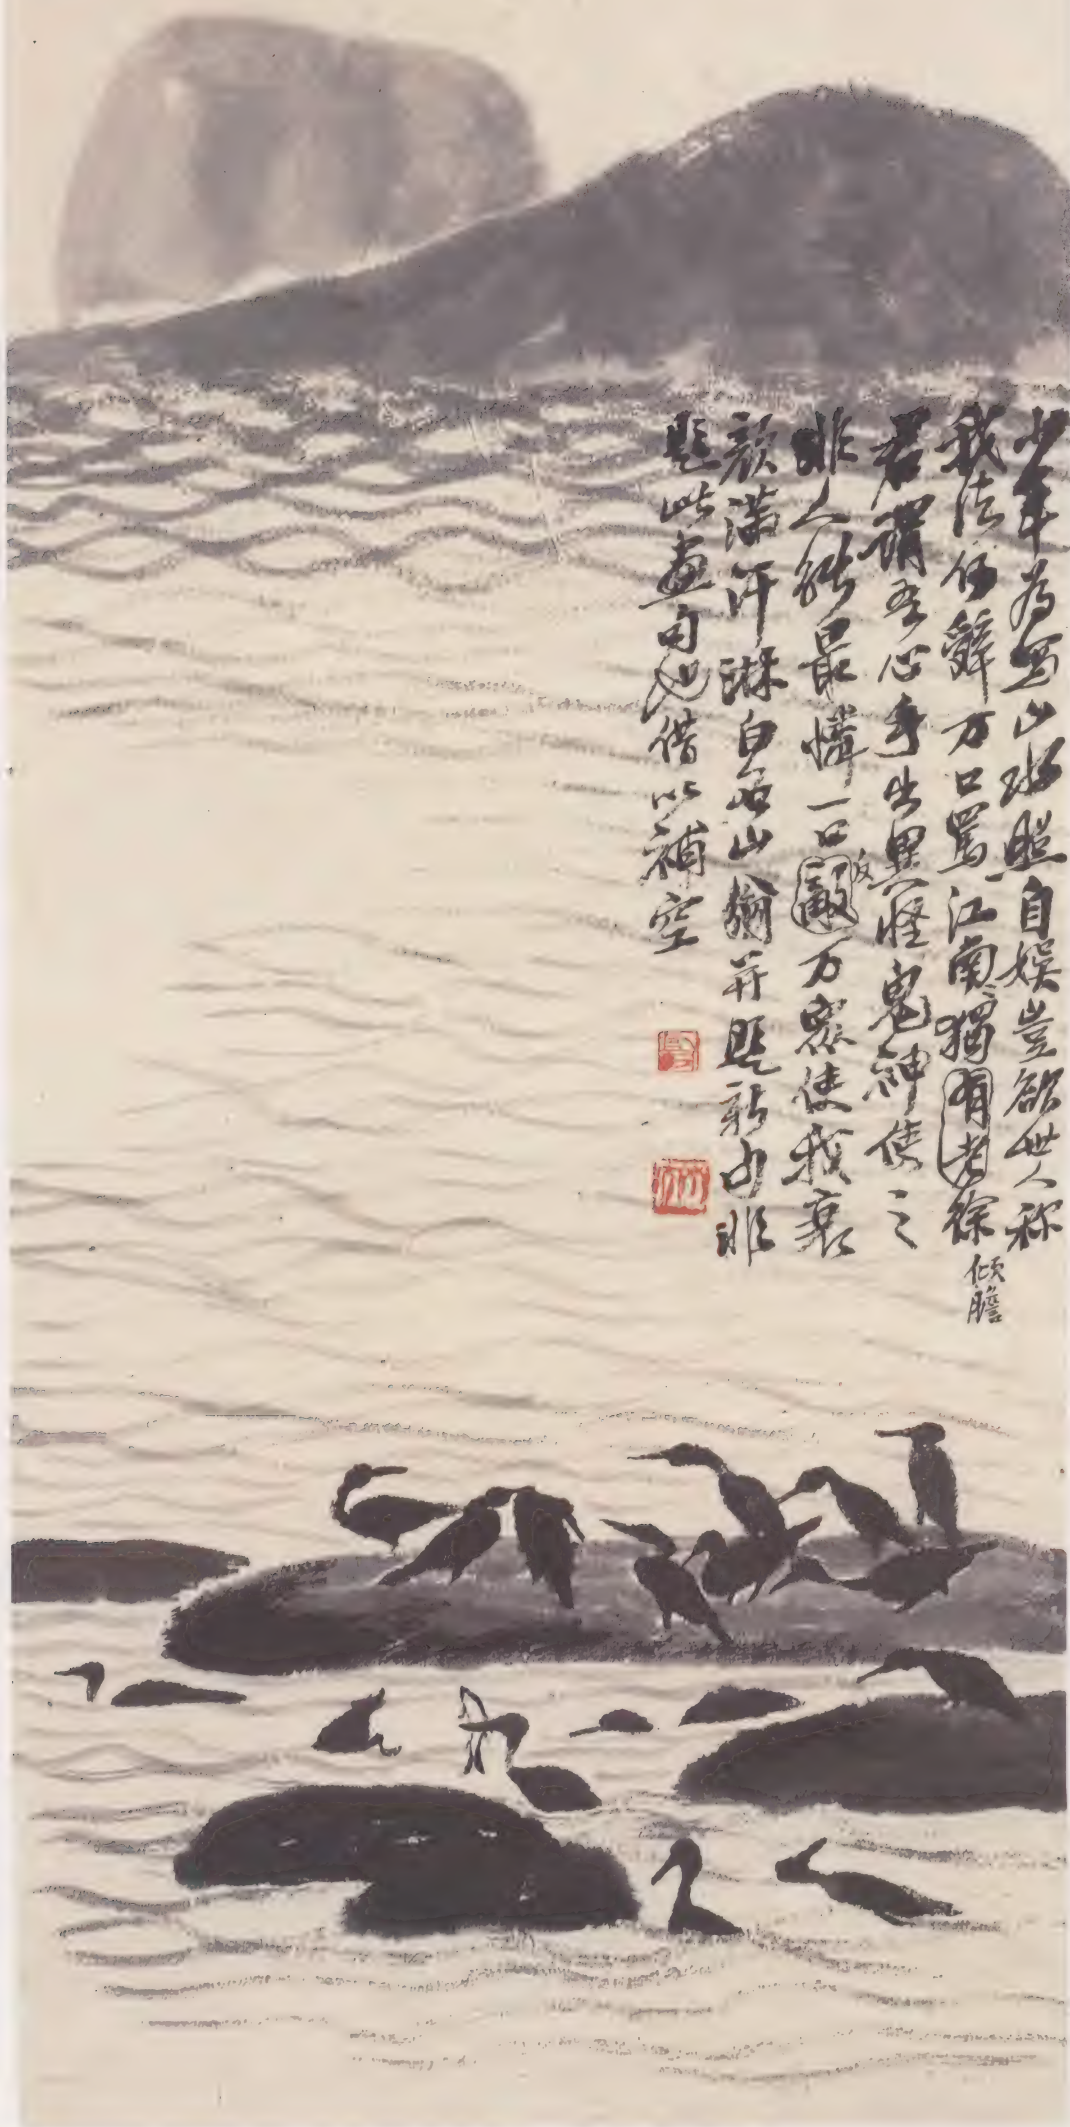 少年為寫山水照自娱豈欲世人称
我法何辭万口罵江南獨有老徐
傾膽
君謂吾心手出異怪鬼神使之
非人能最憐一口敵万衆使我衰
反
顏滿汗淋白石山翁并題新句非
題此畫句也借以補空